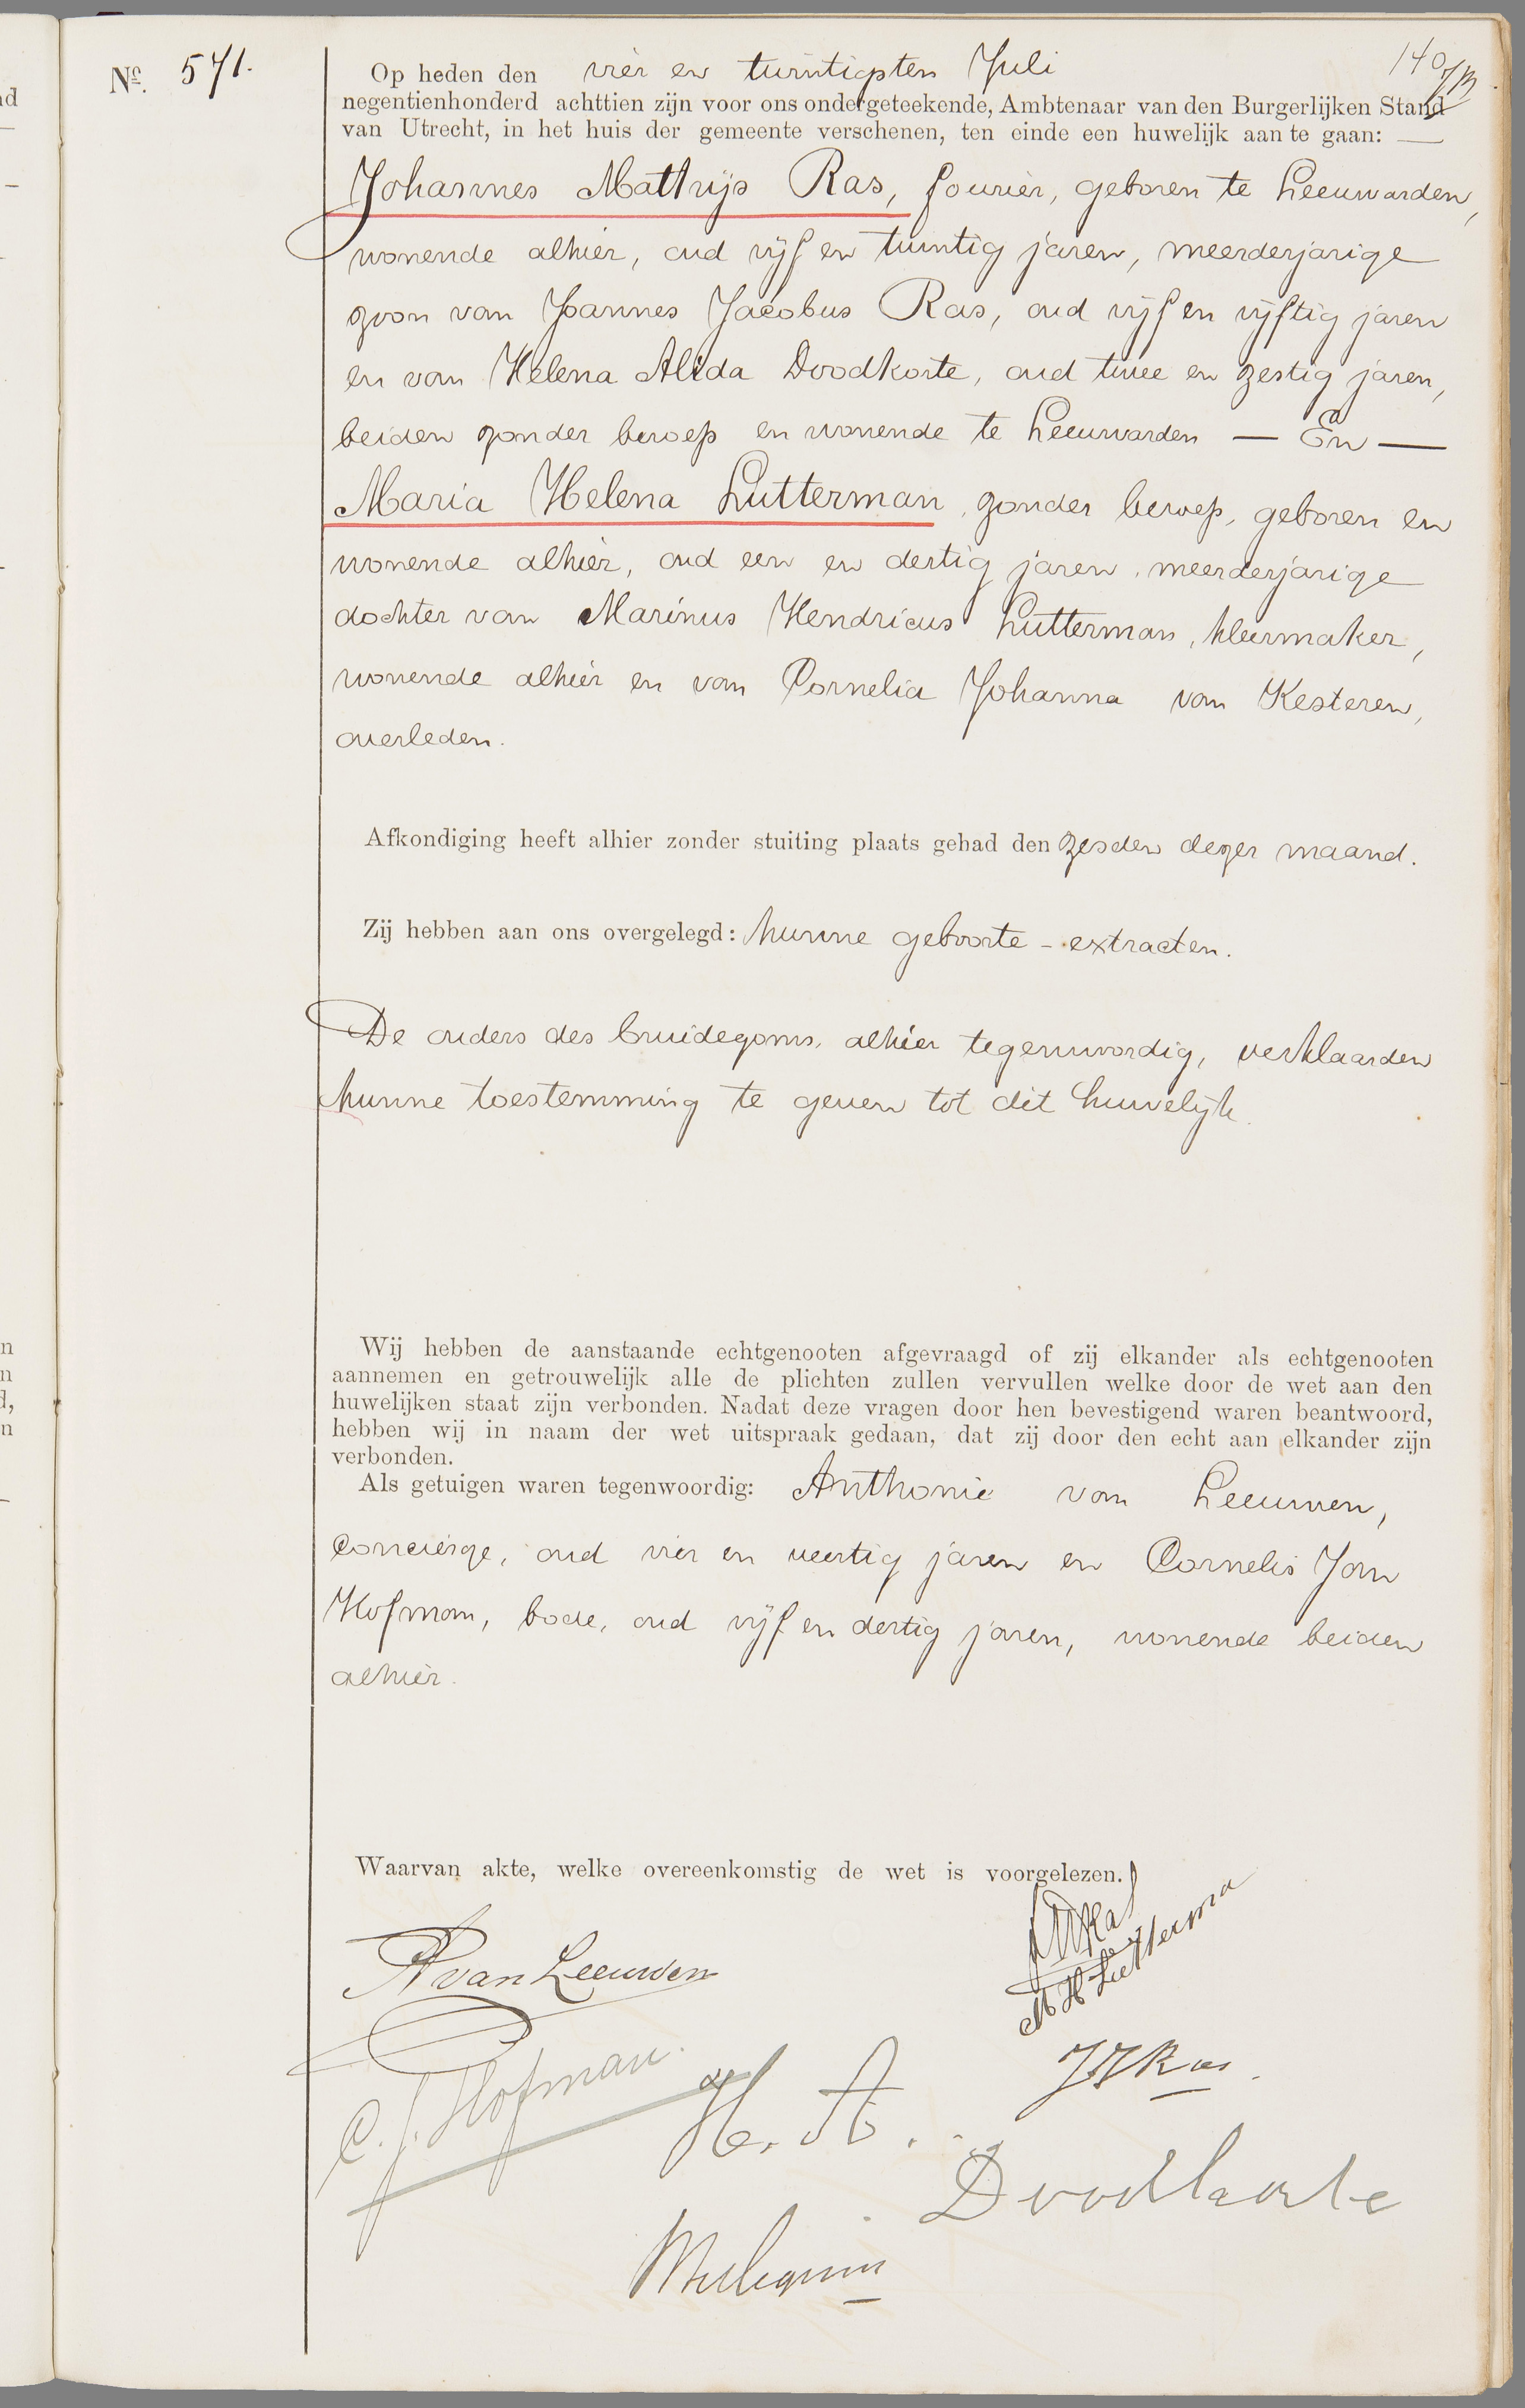 Nº. 571.
140
Op heden den vier en twintigsten Juli
negentienhonderd achttien zijn voor ons ondergeteekende, Ambtenaar van den Burgerlijken Stand
van Utrecht, in het huis der gemeente verschenen, ten einde een huwelijk aan te gaan: —
Johannes Matthijs Ras, fourier, geboren te Leeuwarden,
wonende alhier, oud vijf en twintig jaren, meerderjarige
zoon van Joannes Jacobus Ras, oud vijf en vijftig jaren
en van Helena Alida Doodkorte, oud twee en zestig jaren,
beiden zonder beroep en wonende te Leeuwarden — En —
Maria Helena Lutterman, zonder beroep, geboren en
wonende alhier, oud een en dertig jaren, meerderjarige
dochter van Marinus Hendricus Lutterman, kleermaker,
wonende alhier en van Cornelia Johanna van Kesteren,
overleden.
Afkondiging heeft alhier zonder stuiting plaats gehad den zesden dezer maand.
Zij hebben aan ons overgelegd: hunne geboorte-extracten.
De ouders des bruidegoms, alhier tegenwoordig, verklaarden
hunne toestemming te geven tot dit huwelijk.
Wij hebben de aanstaande echtgenooten afgevraagd of zij elkander als echtgenooten
aannemen en getrouwelijk alle de plichten zullen vervullen welke door de wet aan den
huwelijken staat zijn verbonden. Nadat deze vragen door hen bevestigend waren beantwoord,
hebben wij in naam der wet uitspraak gedaan, dat zij door den echt aan elkander zijn
verbonden.
Als getuigen waren tegenwoordig: Anthonie van Leeuwen,
concierge, oud vier en veertig jaren en Cornelis Jan
Hofman, bode, oud vijf en dertig jaren, wonende beiden
alhier.
Waarvan akte, welke overeenkomstig de wet is voorgelezen.
JMRas
A van Leeuwen
M H Lutterma
JJRas.
C. J. Hofman.
H. A.
Doodkorte